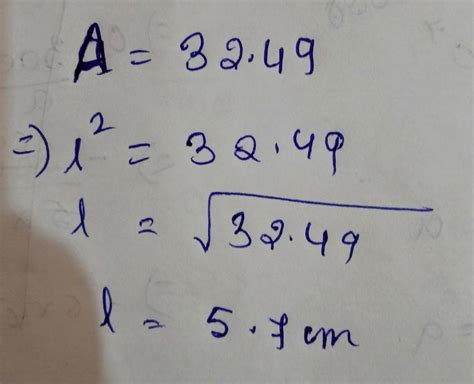 A = 32.49
=) l² = 32.49
l = √32.49
l = 5.7 cm